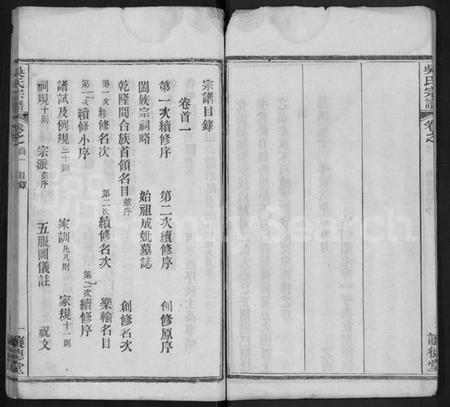 吳氏宗譜
卷之
宗譜目錄
卷首一
第一次續修序 第二次續修序 創修原序
闔族宗祠略 始祖成妣墓誌
乾隆間合族首領名目並序 創修名次
第一次續修名次 第二次續修名次 樂輸名目
第一次續修小序 第二次續修序
譜試及例規二十則 家訓九凡則 家規十一則
祠規十則 宗派並序 五服圖儀註 祝文
吳氏宗譜
卷之首一 目錄
一
護德堂